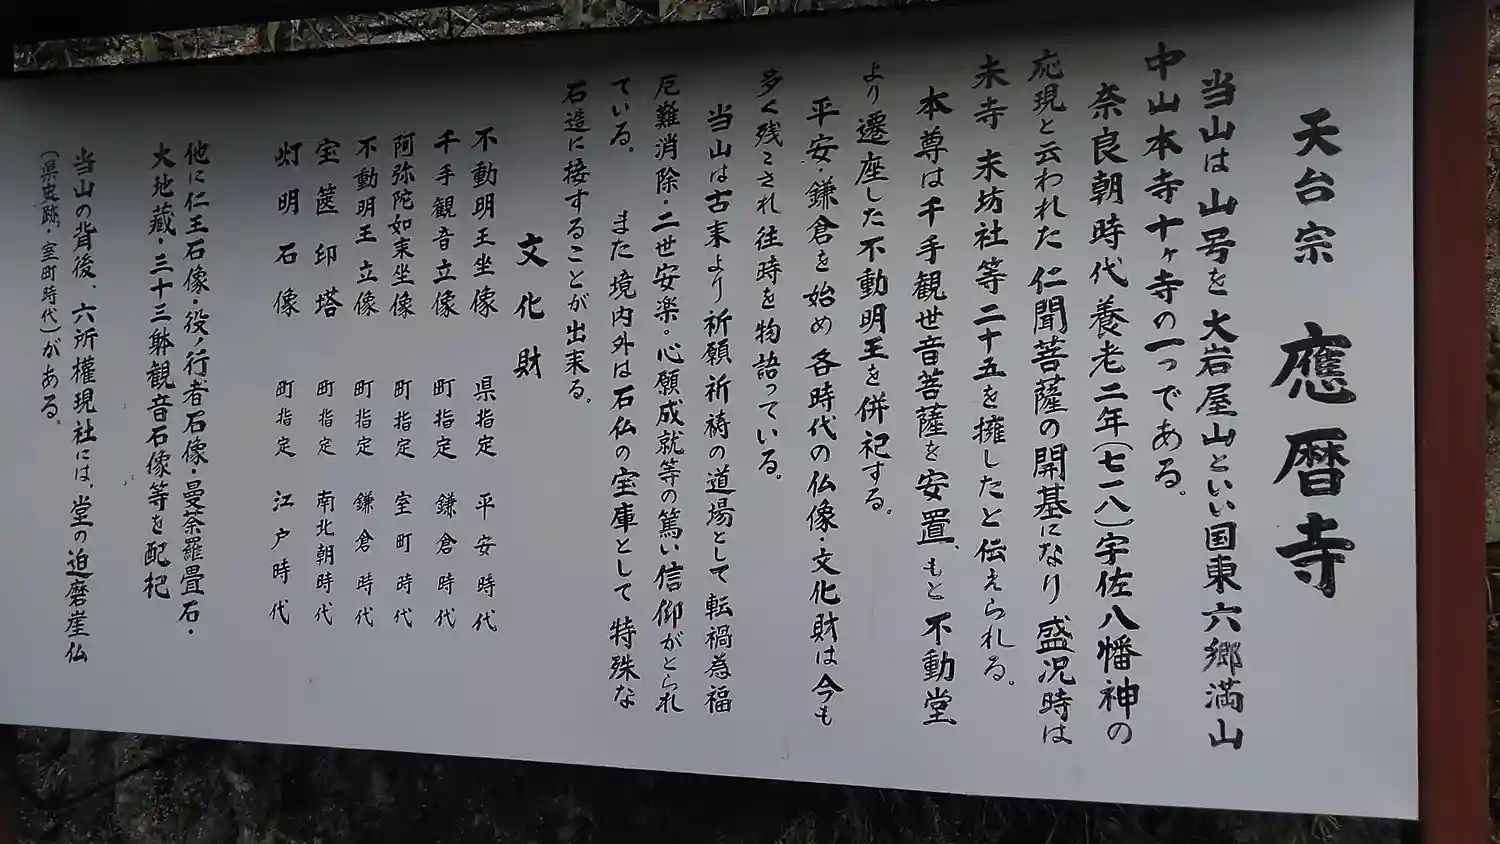 天台宗 應暦寺
当山は山号を大岩屋山といい国東六郷満山
中山本寺十ヶ寺の一つである。
奈良朝時代養老二年(七一八)宇佐八幡神の
応現と云われた仁聞菩薩の開基になり盛況時は
末寺 末坊社等二十五を擁したと伝えられる。
本尊は千手観世音菩薩を安置、もと不動堂
より遷座した不動明王を併祀する。
平安・鎌倉を始め各時代の仏像・文化財は今も
多く残こされ往時を物語っている。
当山は古来より祈願祈祷の道場として転禍為福
厄難消除・二世安楽。心願成就等の篤い信仰がとられ
ている。 また境内外は石仏の宝庫として特殊な
石造に接することが出来る。
文化財
不動明王坐像 県指定 平安時代
千手観音立像 町指定 鎌倉時代
阿弥陀如来坐像 町指定 室町時代
不動明王立像 町指定 鎌倉時代
宝篋印塔 町指定 南北朝時代
灯明石像 町指定 江戸時代
他に仁王石像・役ノ行者石像・曼荼羅畳石・
大地蔵・三十三躰観音石像等を配杞
当山の背後、六所權現社には、堂の迫磨崖仏
(県史跡・室町時代)がある。